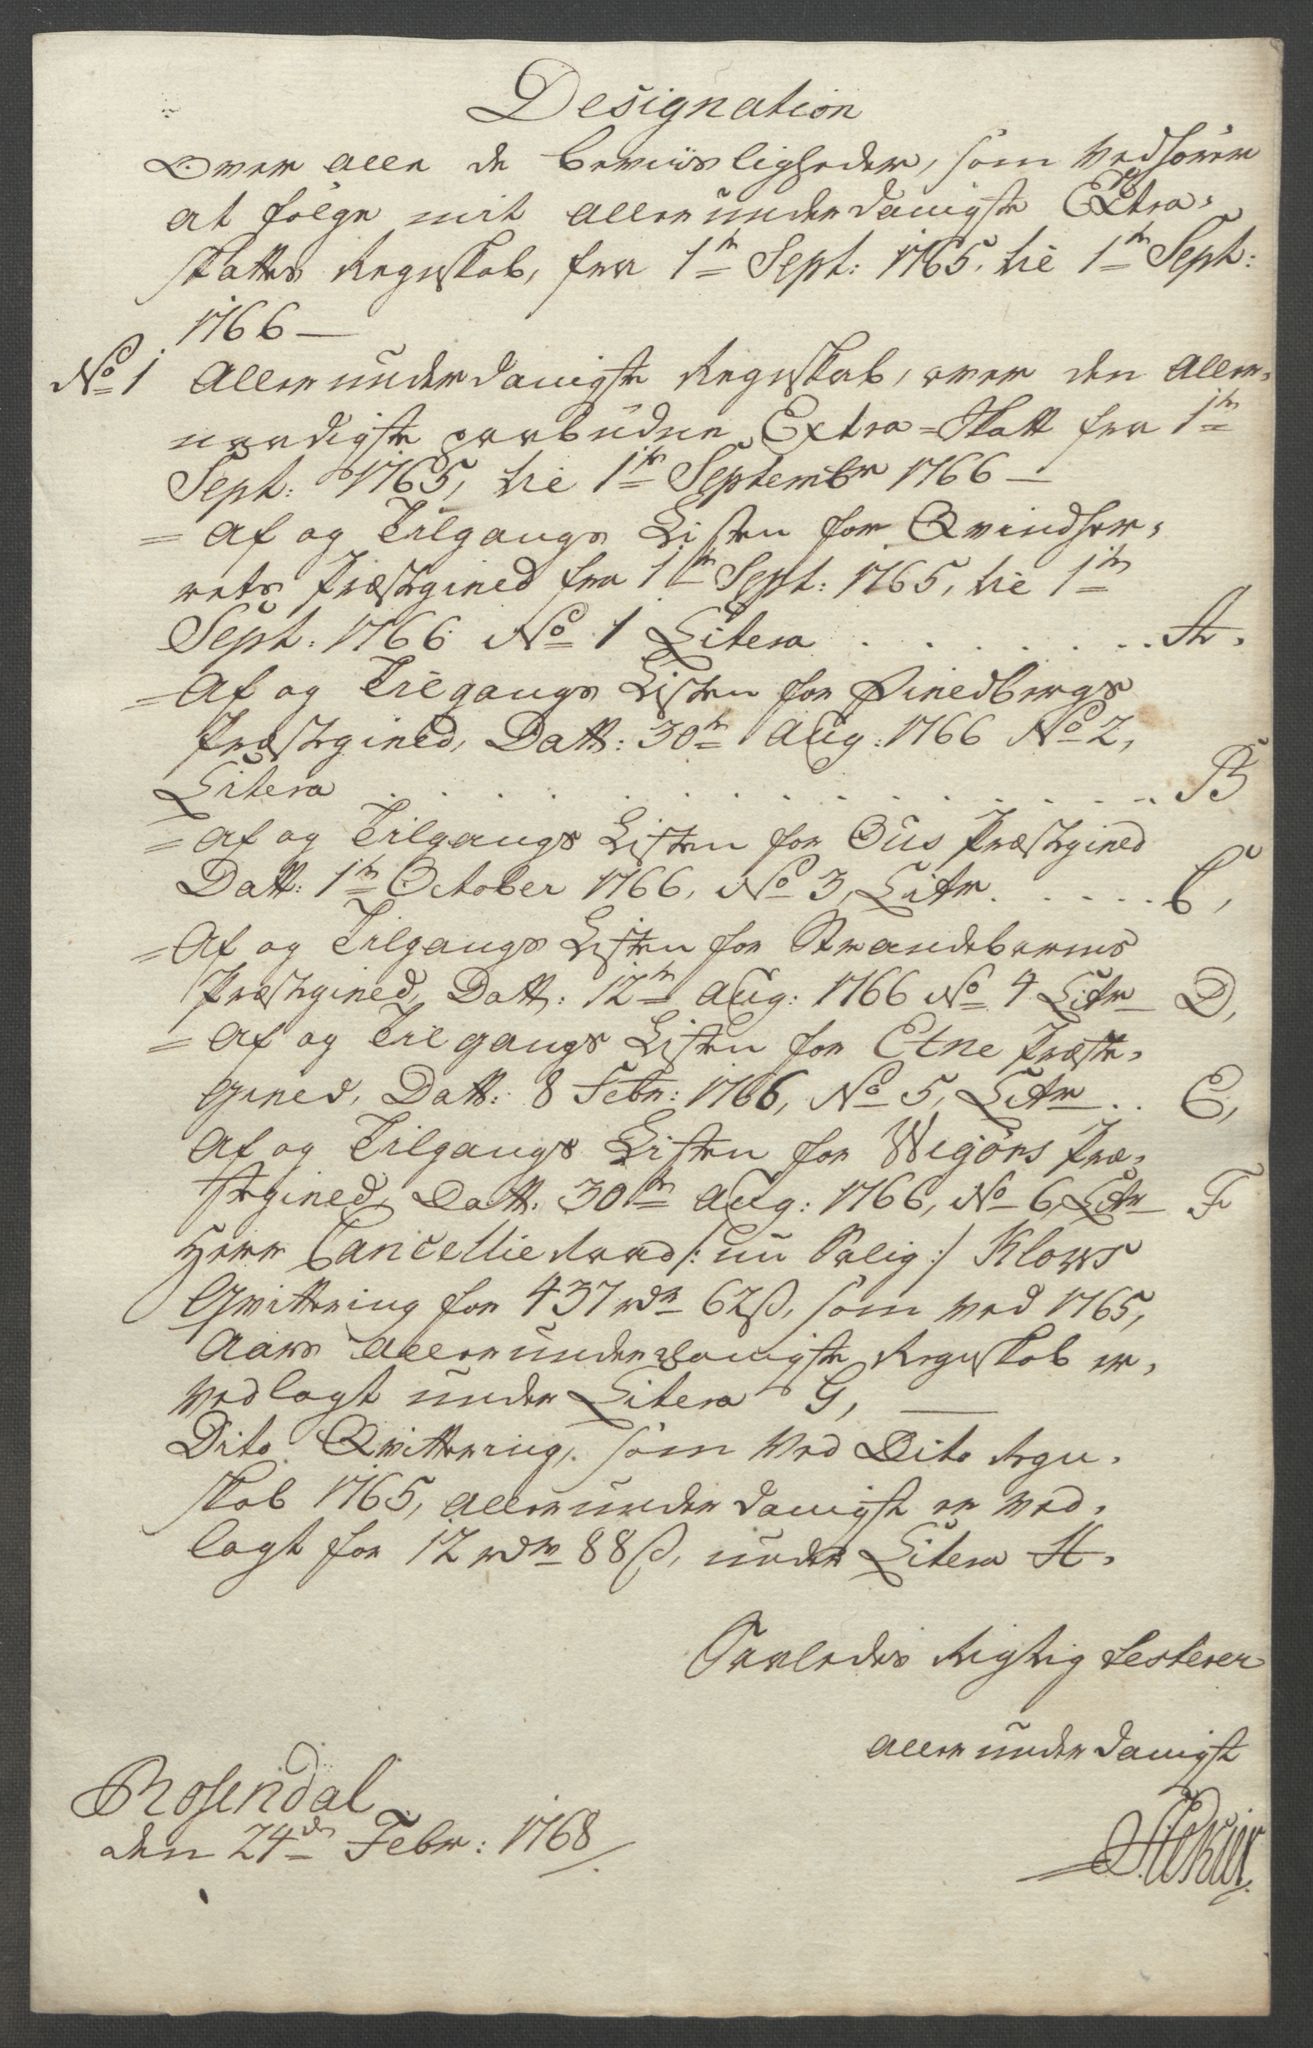 Designation
Over alle de beviisligheder, som vedhører
at følge mit allerunderdanigste Extra-
skattes Regnskab, fra 1te Sept: 1765, til 1te Sept:
1766 —
No 1 Allerunderdanigste Regnskab, over den Aller-
naadigste paabudne Extra-Skatt fra 1te
Sept: 1765, til 1te Septembr 1766 —
= Af og Tilgangs Listen for Qvindher-
rets Præstegield fra 1te Sept: 1765, til 1te
Sept: 1766 No 1 Litera . . . . . . . A.
= Af og Tilgangs Listen for Findbergs
Præstegield, Datt: 30te Aug: 1766 No 2,
Litera . . . . . . . . . . . . . . . B
= Af og Tilgangs Listen for Ous Præstegield
Datt: 1te October 1766, No 3, Litr . . . . . C,
= Af og Tilgangs Listen for Strandebarms
Præstegield, Datt: 12te Aug: 1766 No 4 Litr — D,
= Af og Tilgangs Listen for Etne Præste-
gield, Datt: 8 Febr: 1766, No 5, Litr . . E,
Af og Tilgangs Listen for Wigørs Præ-
stegield, Datt: 30te Aug: 1766, No 6, Litr F
Herr Cancellie Raad /: nu Salig :/ Klows
Qvittering for 437 rdr 62 ß, som ved 1765,
Aars allerunderdanigste Regnskab er,
vedlagt under Litera G, —
Dito Qvittering, som ved Dito Regn-
skab 1765, allerunderdanigst er ved-
lagt for 12 rdr 88 ß, under Litera H.
Saaledes Rigtig testerer
allerunderdanigst
Rosendal
den 24de Febr: 1768